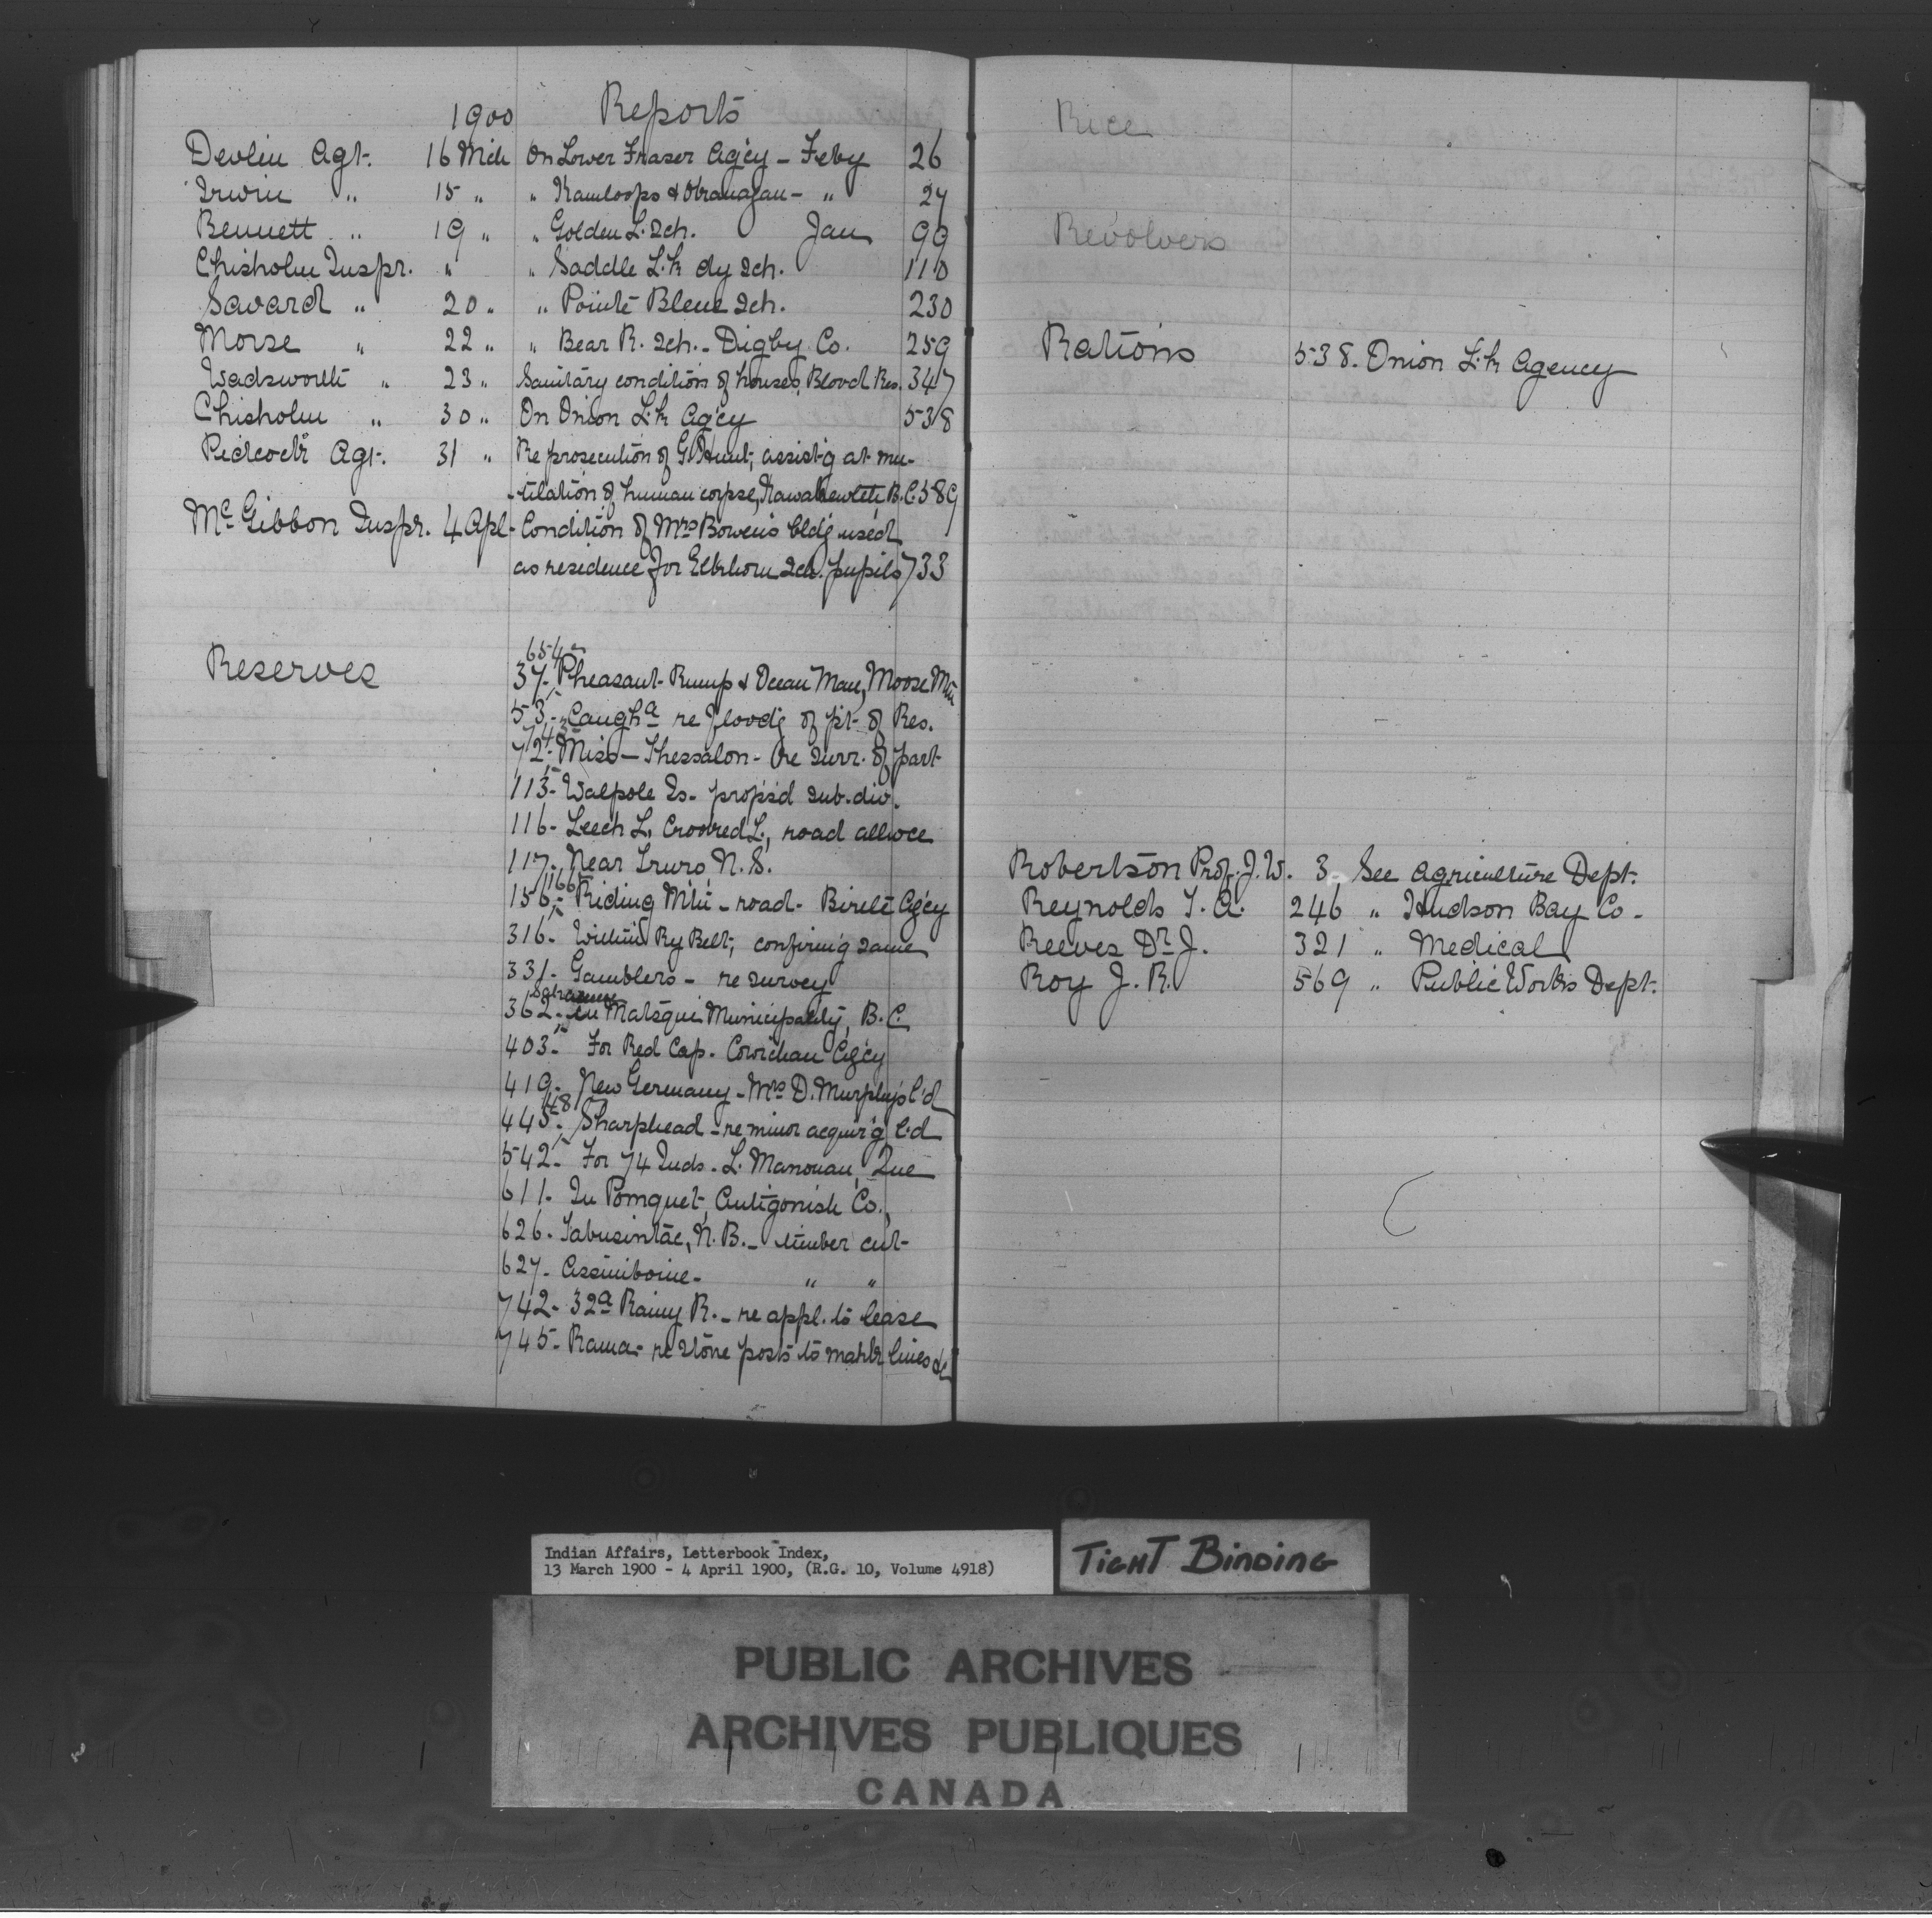 1900 Reports
Devlin Agt. 16 Mch On Lower Fraser Ag'cy - Feby 26
Irwin " 15 " " Kamloops & Okanagan - " 27
Bennett " 19 " " Golden L. Sch. Jan 99
Chisholm Inspr. " " Saddle L.k dy Sch. 110
Savard " 20 " " Pointe Bleue Sch. 230
Morse " 22 " " Bear R. Sch. - Digby Co. 259
Wadsworth " 23 " Sanitary condition of houses, Blood Res. 347
Chisholm " 30 " On Onion L.k Ag'cy 538
Pidcock Agt. 31 " Re prosecution of G. Hunt, assist'g at mu-
-tilation of human corpse, B.C. 589
McGibbon Inspr. 4 Apl. Condition of Mrs Bowen's bldg used
as residence for Elkhorn Sch. pupils 733
Reserves
654
37 - Pheasant Rump & Ocean Man, Moose Mtn
53 - Caugha re flood'g of pt of Res.
743
72 - Miss - Thessalon - re surr. of part
113 - Walpole Is. prop's'd sub-div.
116 - Leech L., Crooked L., road allwce
117 - Near Truro, N.S.
166
156 - Riding Mtn - road - Birtle Ag'cy
316 - Within Ry Belt, confirm'g same
331 - Gamblers - re survey
362 - in Matsqui Municipality, B.C.
403 - For Red Cap. Cowichan Ag'cy
419 - New Germany - Mrs D. Murphy's l'd
448
445 - Sharphead - re minor acquir'g l'd
542 - For 74 Inds. L. Manouan, Que
611 - In Pomquet, Antigonish Co.,
626 - Tabusintac, N.B. - timber cut
627 - Assiniboine - " "
742 - 32a Rainy R. - re appl. to lease
745 - Rama - re stone posts to mark lines &c
Rice
Revolvers
Rations 538. Onion L.k Agency
Robertson Prof. J.W. 3 See Agriculture Dept.
Reynolds T.A. 246 " Hudson Bay Co.
Reeves Dr J. 321 " Medical
Roy J.R. 569 " Public Works Dept.
Indian Affairs, Letterbook Index,
13 March 1900 - 4 April 1900, (R.G. 10, Volume 4918)
TIGHT BINDING
PUBLIC ARCHIVES
ARCHIVES PUBLIQUES
CANADA